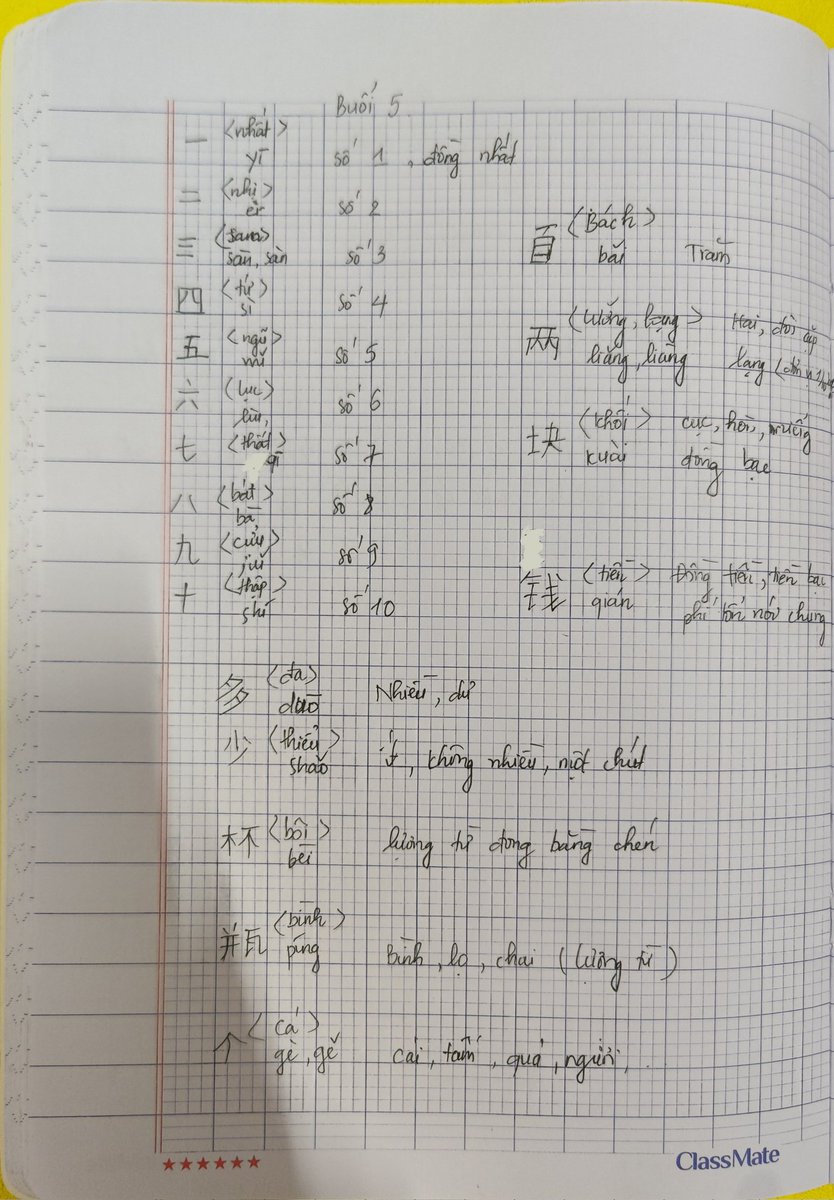 Buổi 5
一 <nhất>
yī số 1, đồng nhất
二 <nhị>
èr số 2
三 <sam>
sān, sàn số 3
四 <tứ>
sì số 4
五 <ngũ>
wǔ số 5
六 <lục>
số 6
七 <thất>
qī số 7
八 <bát>
bā số 8
九 <cửu>
jiǔ số 9
十 <thập>
shí số 10
百 <Bách>
bǎi Trăm
两 <lưỡng, lạng> Hai, đôi cặp
liǎng, liàng lạng
块 <khối> cục, hòn, miếng
kuài đồng bạc
钱 <tiền> Đồng tiền, tiền bạc
qián phí tổn nói chung
多 <đa>
duō Nhiều, dư
少 <thiểu>
shǎo ít, không nhiều, một chút
杯 <bôi>
bēi lượng từ đong bằng chén
瓶 <bình>
píng Bình, lọ, chai (lượng từ)
个 <cá>
gè, gě cái, tấm, quả, người, ...
ClassMate